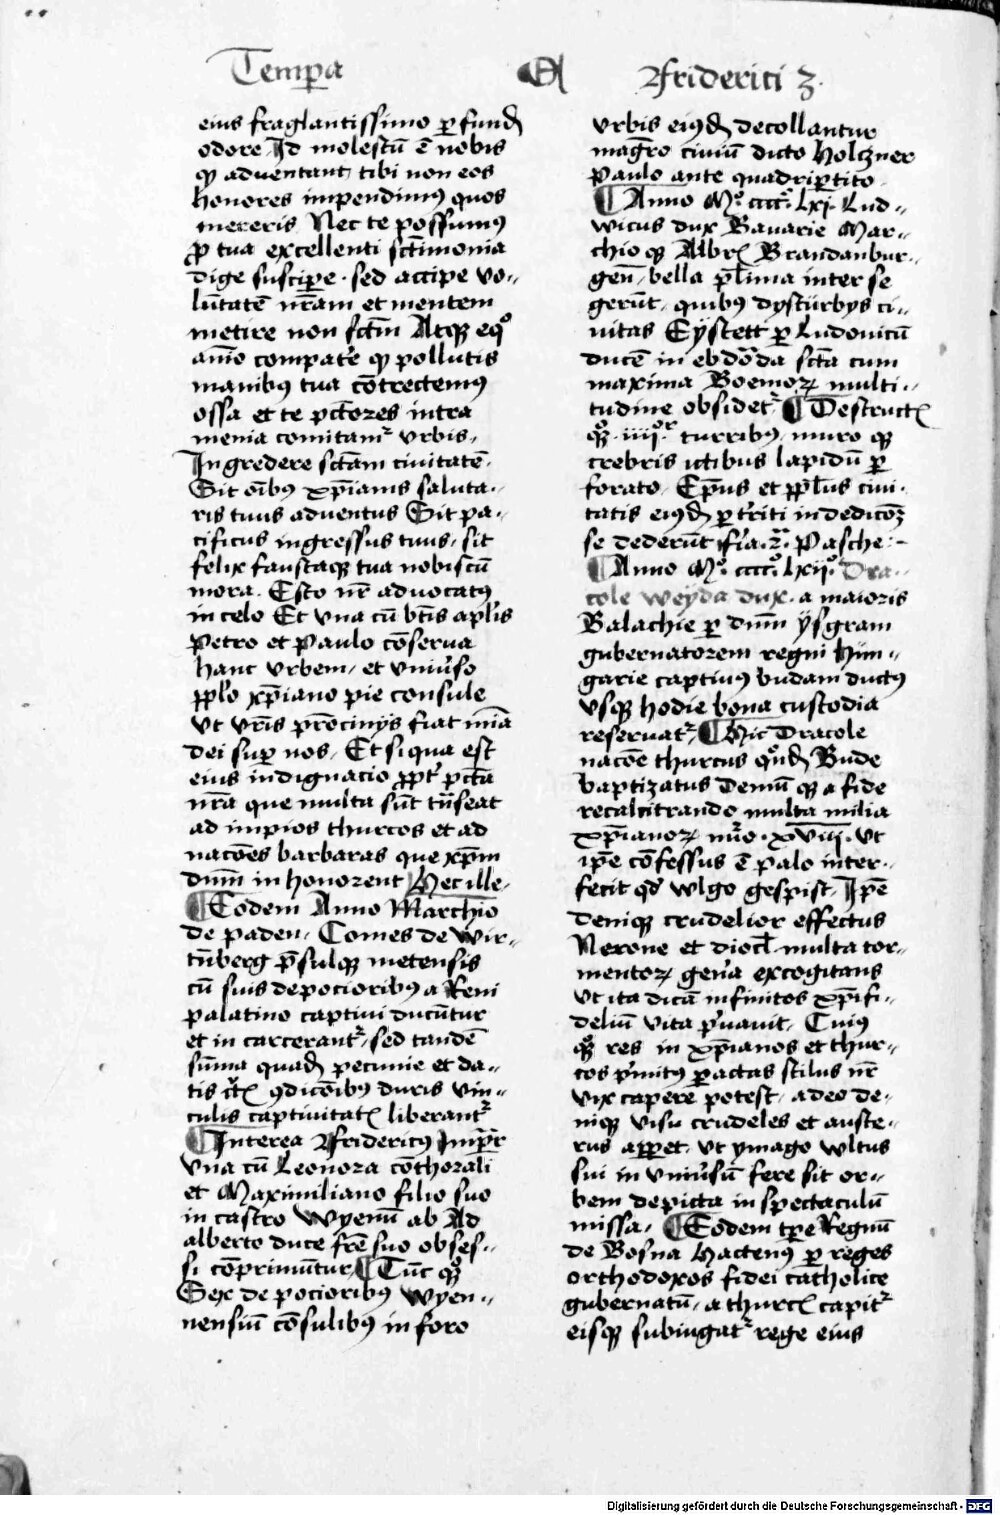 Temp̱a
Friderici 3.
eius fraglantissimo ꝑfund
odore. Id molestū ē nobis
qꝫ adventant tibi non eos
honores impendimꝰ quos
mereris. Nec te possumꝰ
ꝓ tua excellenti sc̄timonia
dige suscipe. sed accipe vo-
lūtatē nr̄am et mentem
metire non sc̄tm Atqꝫ eqͦ
aīo compat'e qꝫ pollutis
manibꝰ tua cōtrectemꝰ
ossa et te pctōres intra
menia comitamr̉ vrbis.
Ingredere sc̄tam civitatē.
Sit oībꝰ xp̄ianis saluta-
ris tuus adventus Sit pa-
cificus ingressus tuus, sit
felix faustaqꝫ tua nobiscū
mora. Esto nr̄ advocatꝰ
in celo Et vna cū btīs apl̄is
Petro et Paulo cōserva
hanc vrbem, et vniv̉so
ppl̓o xp̄iano pie consule
vt vr̄is prōcinijs fiat mīa
dei suꝑ nos. Et si qua est
eius indignacio ꝓpt̓ pctā
nr̄a que multa sūt trāseat
ad impios thurcos et ad
nacōes barbaras que xp̄m
dnm̄ in honorent Hec ille.
Eodem Anno Marchio
de paden, Comes de Wir-
tn̄berg p̄sulqꝫ metensis
cū suis depocioribꝰ a Reni
palatino captivi ducūtur
et in carcerantr̉, sed tandē
sūma quad pecunie et da-
tis ꝯdicōibꝰ duris vin-
culis captivitatꝭ liberantr̉
Interea Fridericꝰ Imp̄r
vna cū Leonora cōthorali
et Maximiliano filio suo
in castro Wyenn̄ ab Ad
alberto duce fr̄e suo obses-
si cōprimūtur Tūc qͦꝫ
Sex de pocioribꝰ Wyen-
nensiū cōsulibꝰ in foro
vrbis eiꝰd decollantur
mag̅ro civiū dicto Holczner
Paulo ante quadriꝑtito.
Anno Mͦ. ccccͦ. lxi. Lud-
wicus dux Bavarie Mar-
chioqꝫ Albrꝭ Brandanbur-
gen̄, bella pl̓ima inter se
gerūt, quibꝰ dystürbys ci-
vitas Eystett ꝑ Ludovicū
ducē in ebdōda sc̄ta cum
maxima Boemoꝝ multi-
tudine obsidetr̉ Destructꝭ
qͦꝫ. iiii.r turribꝰ, muro qꝫ
crebris ictibus lapidū ꝑ
forato. Ep̄us et ppl̓us civi-
tatis eiꝰd ꝑt'riti in dedicōꝫ
se dederūt fīa. 2ͣ. Pasche:-
Anno Mͦ. ccccͦ. lxiiͦ. Dra-
cole weyda dux. a maioris
Balachie ꝑ dnm̄ ysgram
gubernatorem regni Hun-
garie captivꝰ budam ductꝰ
vsqꝫ hodie bona custodia
reservatr̉. Hic Dracole
nacōe thurcus qͦnd Bude
baptizatus Demū qꝫ a fide
recalcitrando multa milia
xp̄ianoꝝ nūo. xviii. vt
ip̄e cōfessus ē palo inter-
fecit qd wlgo gespist. Ip̄e
deniqꝫ crudelior effectus
Nerone et diocl̓. multa tor-
mentoꝝ gen̓a excogitans
vt ita dicā infinitos xp̄ifi-
deliū vita p̓vavit. Cuiꝰ
qͦꝫ res in xp̄ianos et thur-
cos p̓mitꝰ ꝑactas stilus nr̄
vix capere potest. adeo de-
niqꝫ visu crudeles et auste-
rus apꝑet, vt ymago wltus
sui in vniv̉sū fere sit or-
bem depicta in spectaculū
missa. Eodem tꝑe Regnū
de Bosna Hactenꝰ ꝑ reges
orthodoxos fidei catholice
gubernatū, a thurcꝭ capitr̉
eisqꝫ subiugatr̉ rege eius
Digitalisierung gefördert durch die Deutsche Forschungsgemeinschaft - DFG